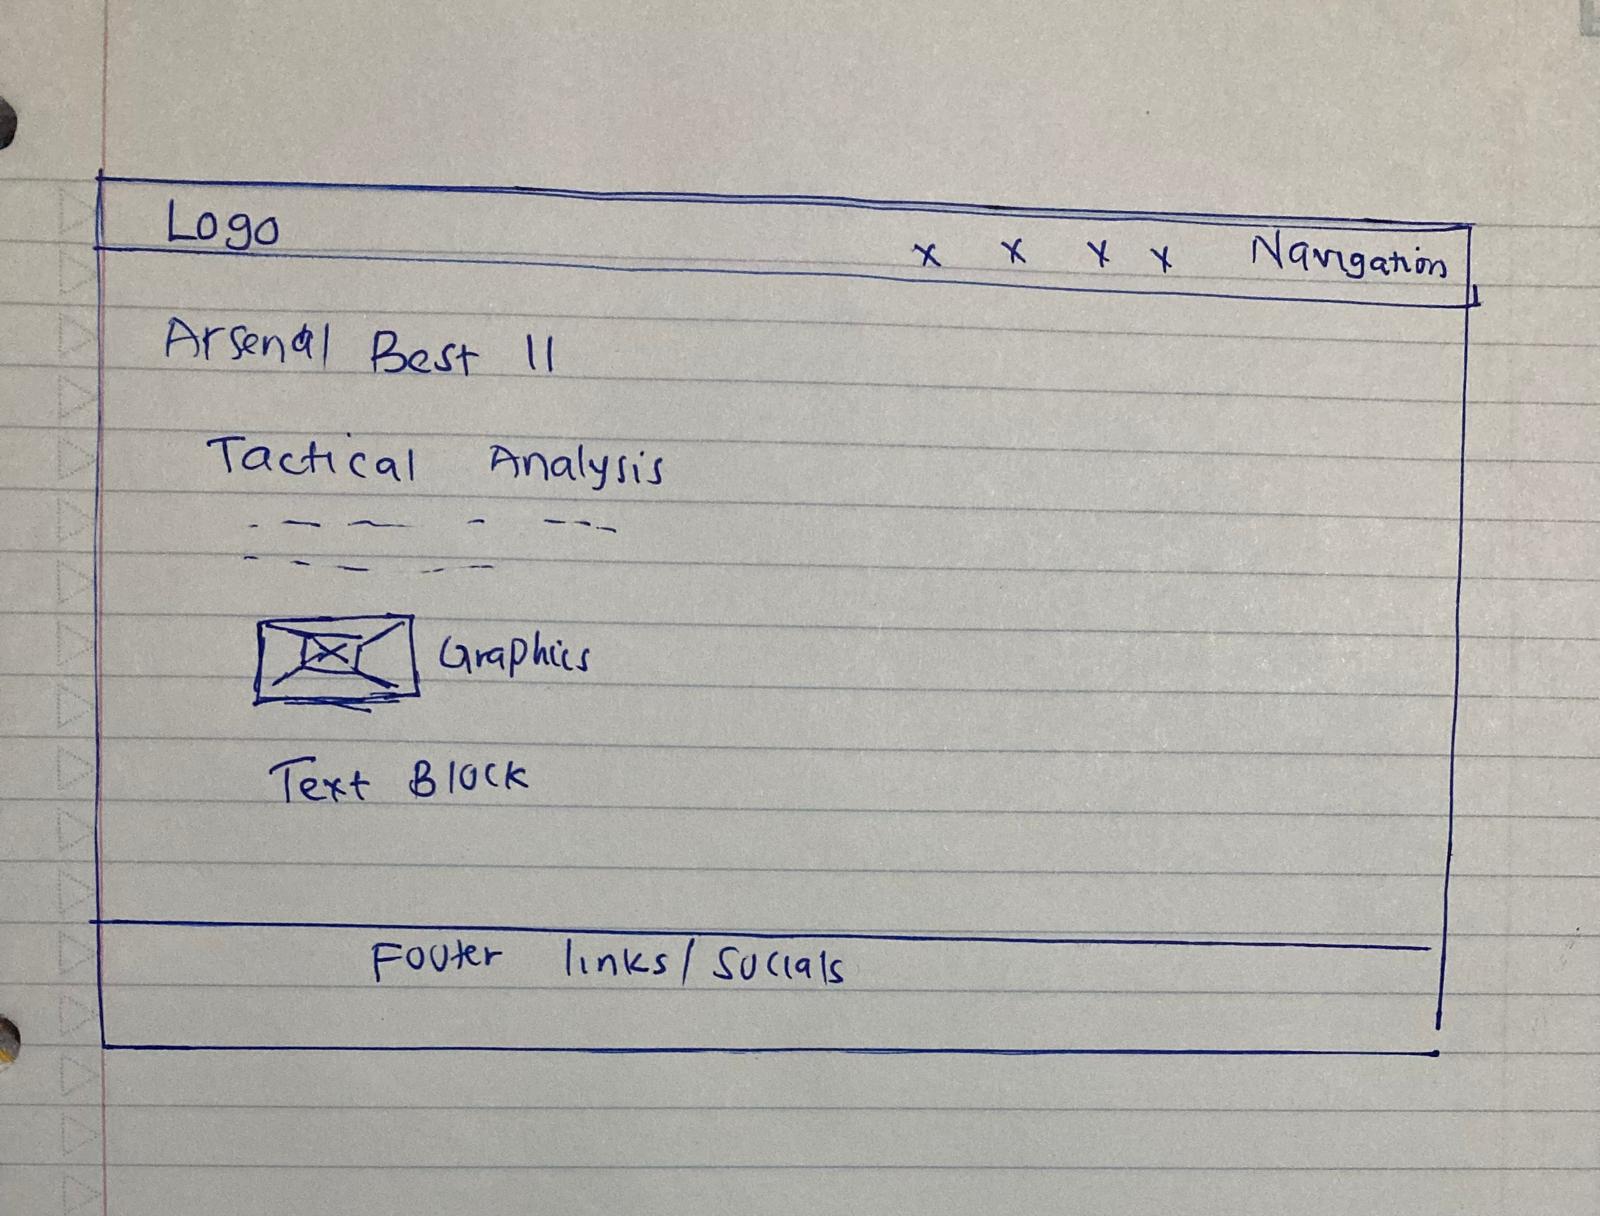 Logo
x x x x Navigation
Arsenal Best 11
Tactical Analysis
Graphics
Text Block
Footer links/Socials